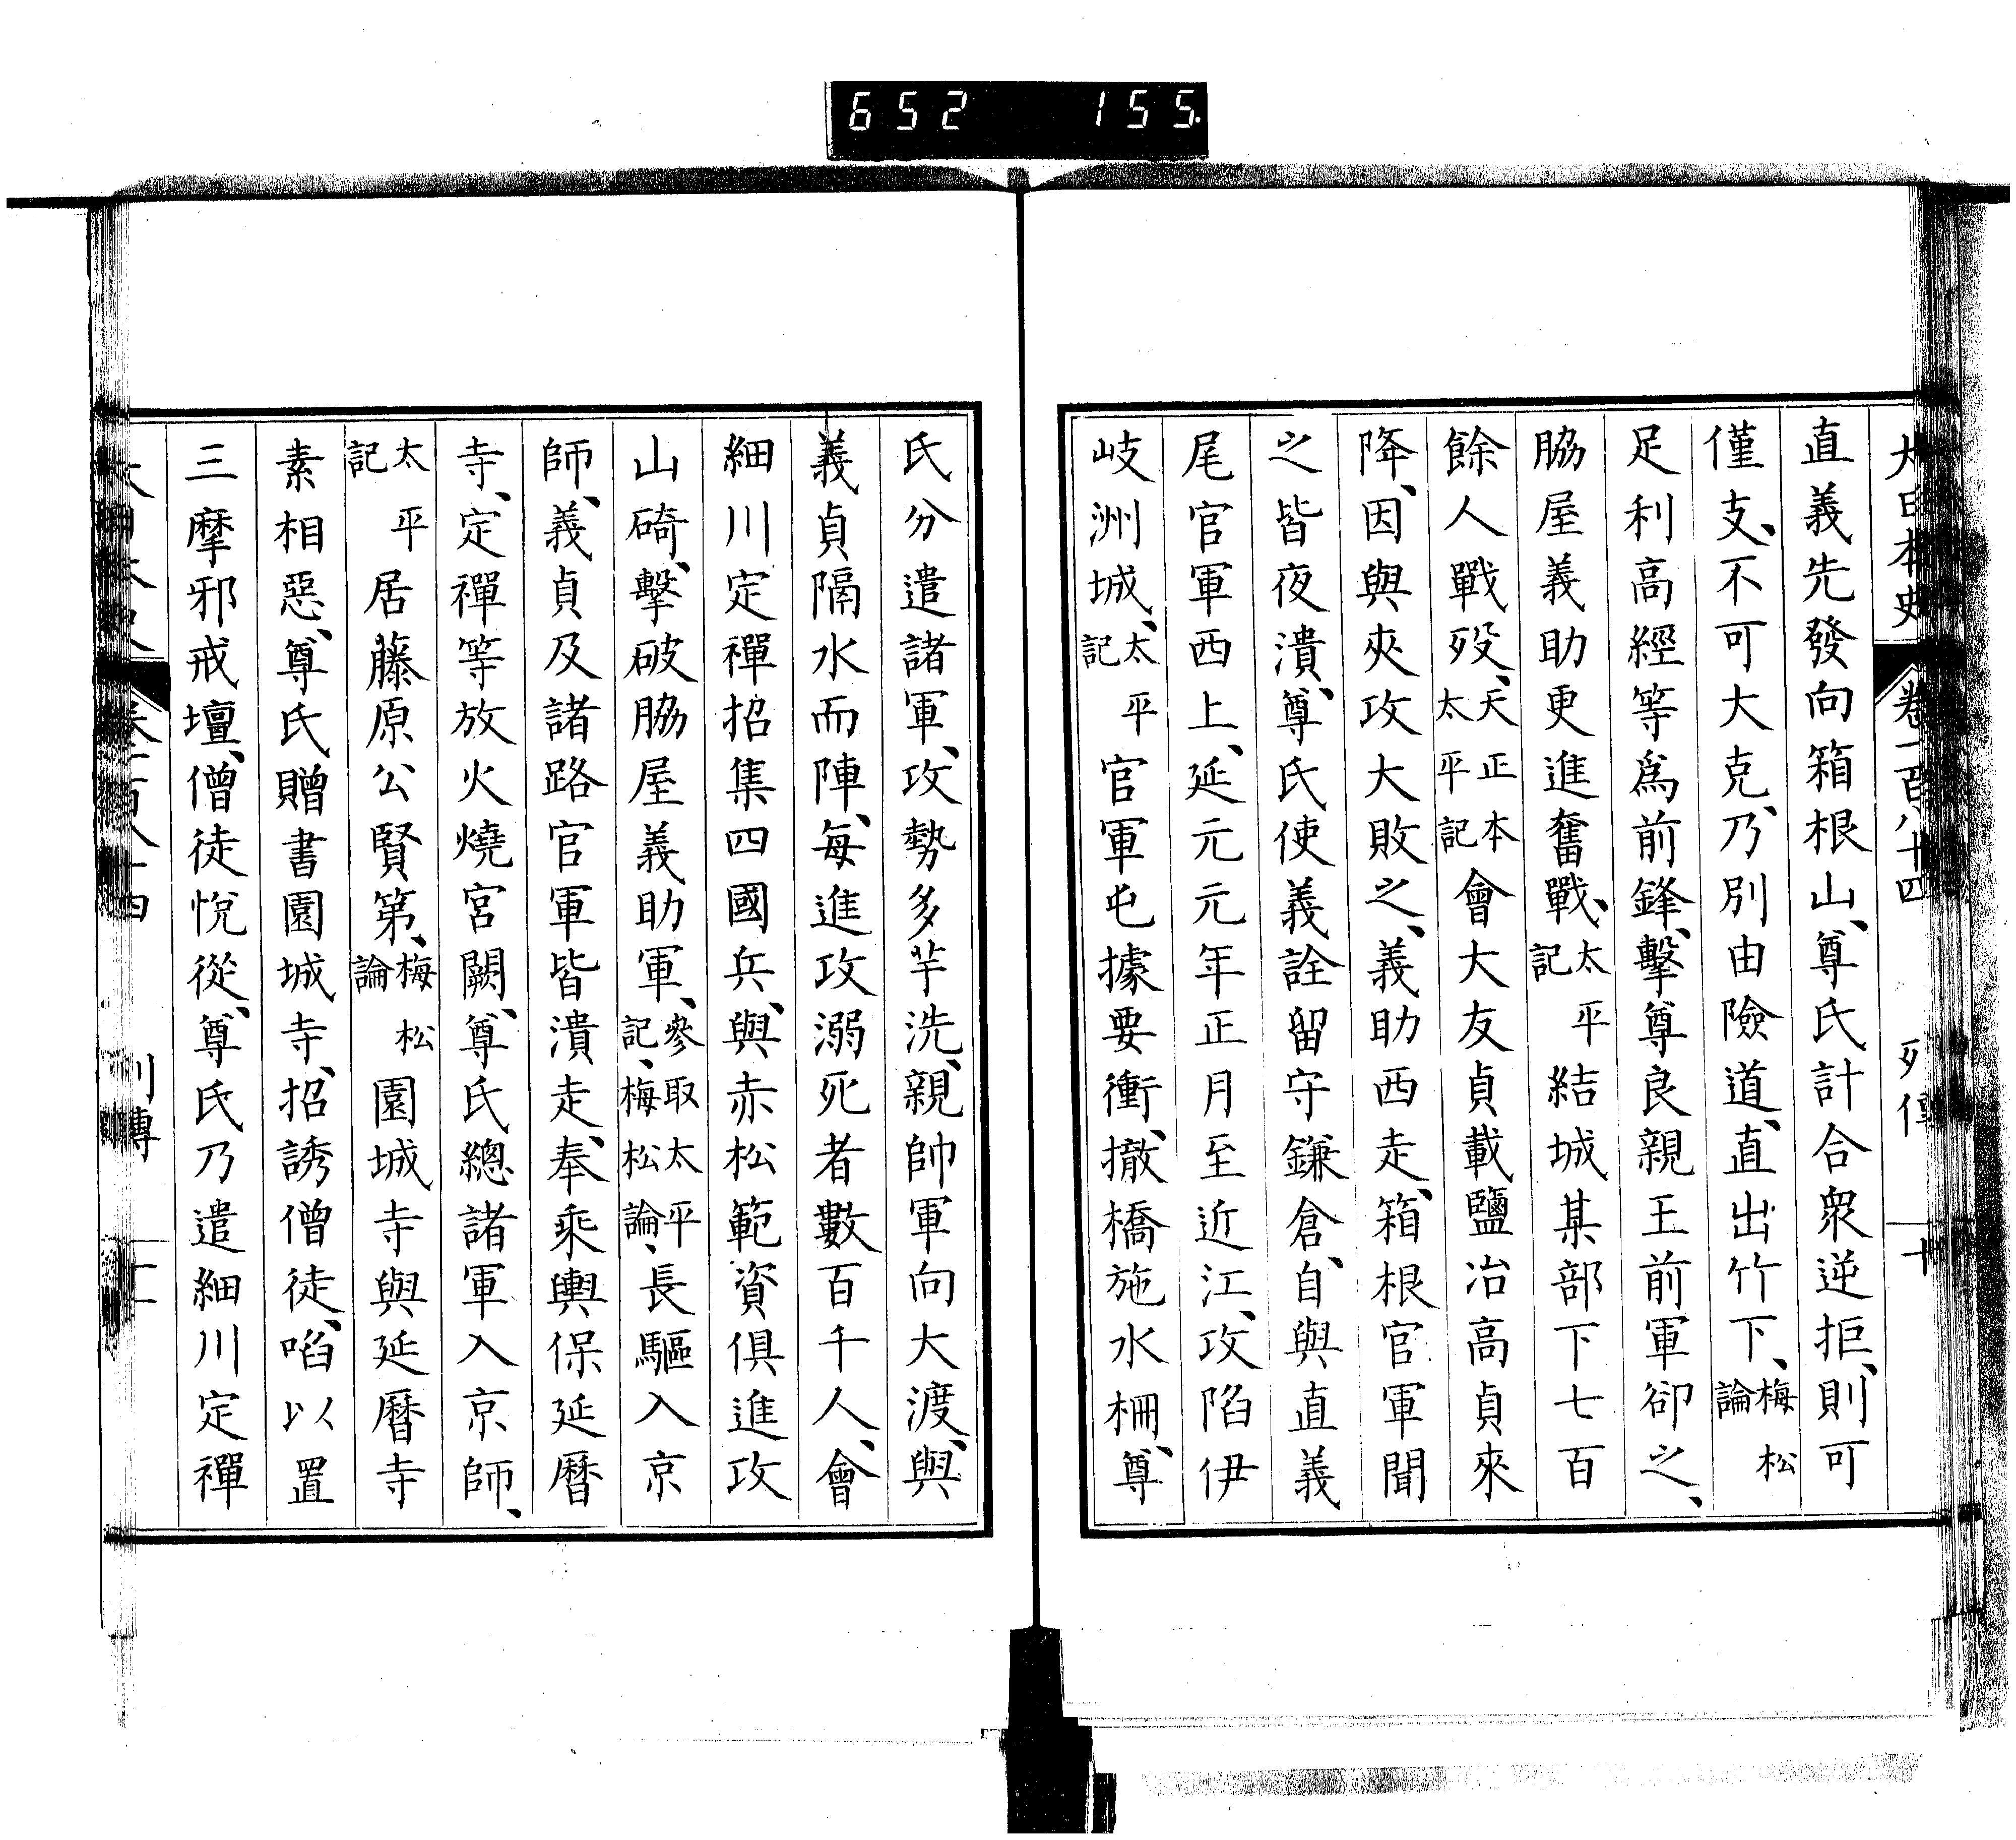 652 155.
大日本史 卷一百八十四 列傳 十
直義先發向箱根山、尊氏計合衆逆拒、則可
僅支、不可大克、乃別由險道、直出竹下、梅松論
足利高經等爲前鋒、擊尊良親王前軍卻之、
脇屋義助更進奮戰、太平記結城某部下七百
餘人戰歿、天正本太平記會大友貞載鹽冶高貞來
降、因與夾攻大敗之、義助西走、箱根官軍聞
之皆夜潰、尊氏使義詮留守鎌倉、自與直義
尾官軍西上、延元元年正月至近江、攻陷伊
岐洲城、太平記官軍屯據要衝、撤橋施水柵、尊
氏分遣諸軍、攻勢多芋洗、親帥軍向大渡、與
義貞隔水而陣、每進攻溺死者數百千人、會
細川定禪招集四國兵、與赤松範資俱進攻
山碕、擊破脇屋義助軍、參取太平記、梅松論、長驅入京
師、義貞及諸路官軍皆潰走、奉乘輿保延曆
寺、定禪等放火燒宮闕、尊氏總諸軍入京師、
太平記居藤原公賢第、梅松論園城寺與延曆寺
素相惡、尊氏贈書園城寺、招誘僧徒、啗以置
三摩邪戒壇、僧徒悅從、尊氏乃遣細川定禪